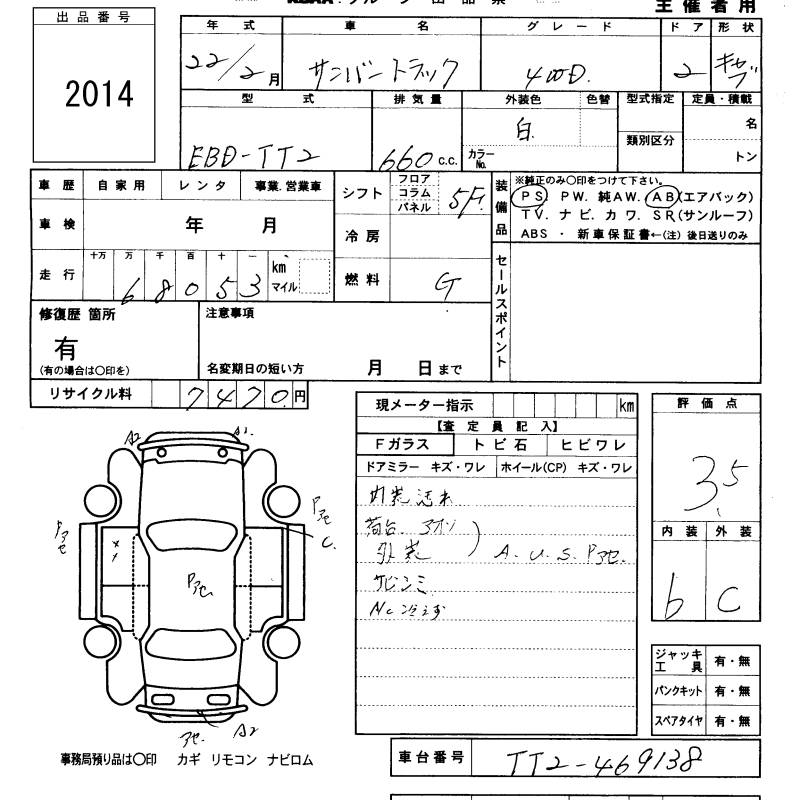 主催者用
出品番号
2014
年式 車名 グレード ドア 形状
22/2月 サンバートラック 4WD. 2 キャブ
型式 排気量 外装色 色替 型式指定 定員・積載
EBD-TT2 660c.c. 白. カラーNo. 類別区分 名
トン
車歴 自家用 レンタ 事業.営業車
車検 年 月
走行 十万 万 千 百 十 一 km マイル
68053
シフト フロア コラム パネル 5F.
冷房
燃料 G
装備品 ※純正のみ〇印をつけて下さい。
PS PW. 純AW. AB(エアバック)
TV. ナビ. カワ. SR(サンルーフ)
ABS ・ 新車保証書←(注) 後日送りのみ
セールスポイント
修復歴 箇所
有
(有の場合は〇印を)
注意事項
名変期日の短い方 月 日まで
リサイクル料 7470円
現メーター指示 km
【査定員記入】
Fガラス トビ石 ヒビワレ
ドアミラー キズ・ワレ ホイール(CP) キズ・ワレ
内装汚れ
荷台 アオリ
外装 A. U. S. Pアセ.
サビシミ
評価点
3.5
内装 外装
b C
A2 A1.
Pアセ
C.
Pアセ
Pアセ.
アセ. A2
ジャッキ工具 有・無
パンクキット 有・無
スペアタイヤ 有・無
事務局預り品は〇印 カギ リモコン ナビロム
車台番号 TT2-469138